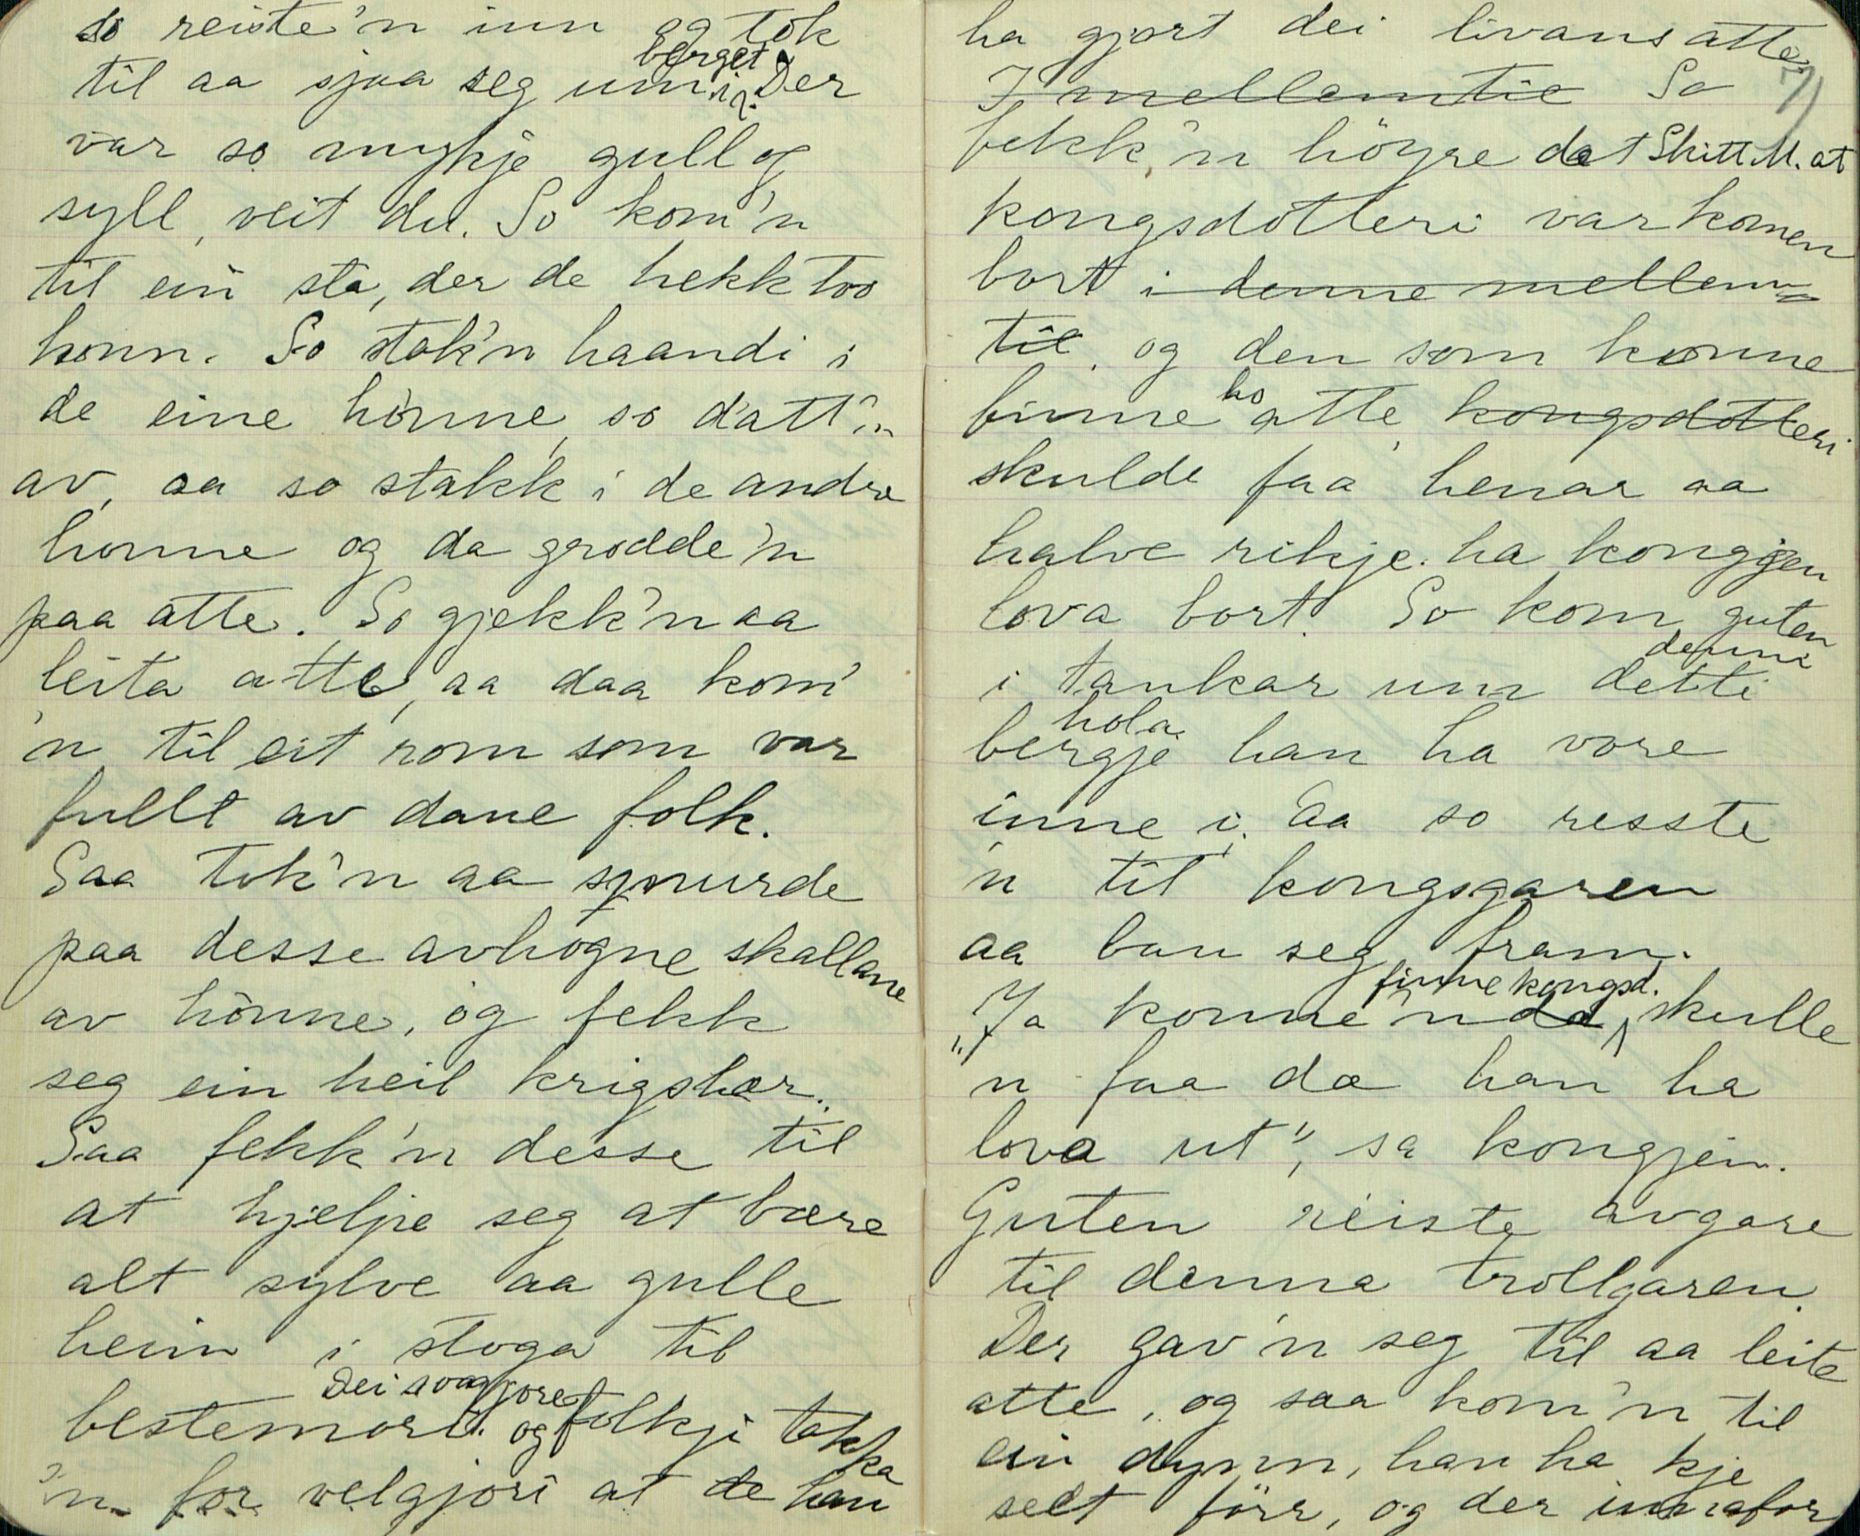 so reiste'n inn og tok
til aa sjaa seg um i berget. Der
var so mykje gull og
syll, veit du. So kom'n
til ein sta, der de hekk too
honn. So stak'n haandi i
de eine hònne, so datt'n
av, aa so stakk i de andre
honne og da grodde'n
paa atte. So gjekk'n aa
leita atte, aa daa kom'
'n til eit rom som var
fullt av daue folk.
Saa tok'n aa smurde
paa desse avhogne skallane
av hònne, og fekk
seg ein heil krigshær.
Saa fekk'n desse til
at hjelpe seg at bære
alt sylve aa gulle
heim i stoga til
bestemori. Dei og folkji takka
'n for velgjori at de han
ha gjort dei livans atte.
7)
I mellemtie So
fekk'n höyre det Skitt M. at
kongsdotteri var komen
bort i denne mellem-
tie, og den som konne
finne ho atte kongsdotteri
skulde faa henar aa
halve rikje. ha kongjen
lova bort. So kom guten
i tankar um detti denni
bergje hola han ha vore
inne i. Aa so resste
'n til kongsgaren
aa bau seg fram.
"Ja konne'n da finne kongsd. skulle
'n faa da han ha
lova ut", sa kongjen.
Guten reiste avgare
til denna trollgaren.
Der gav'n seg til aa leite
atte, og saa kom'n til
ein dynn, han ha kje
sett förr, og der innafor